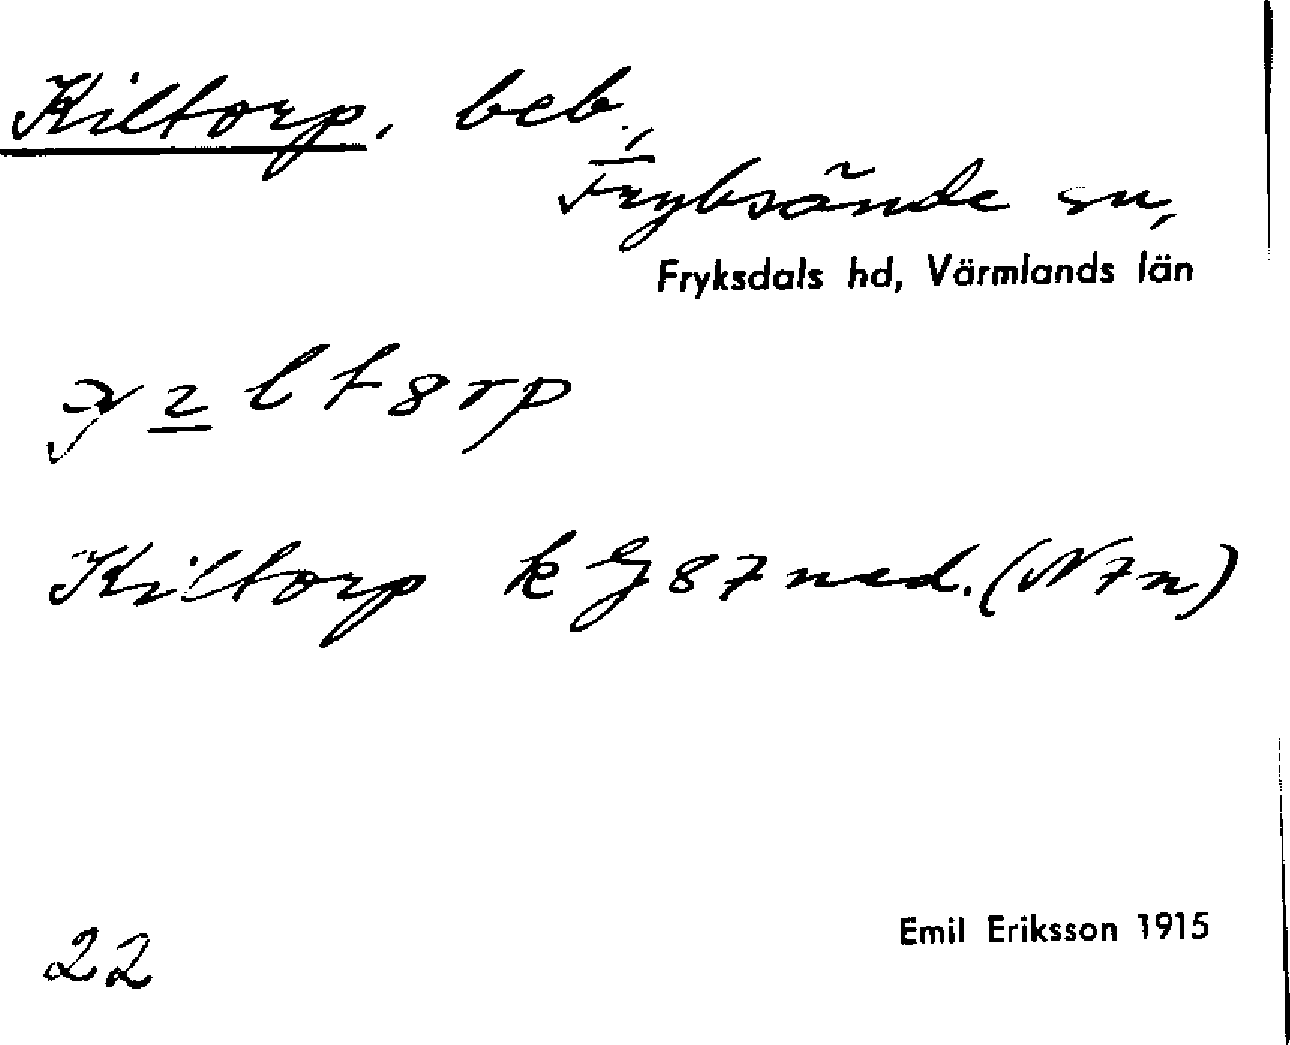 Kiltorp, beb.,
Fryksände sn,
Fryksdals hd, Värmlands län
Kiltorp k Gj 87 ned. (N7n)
22
Emil Eriksson 1915